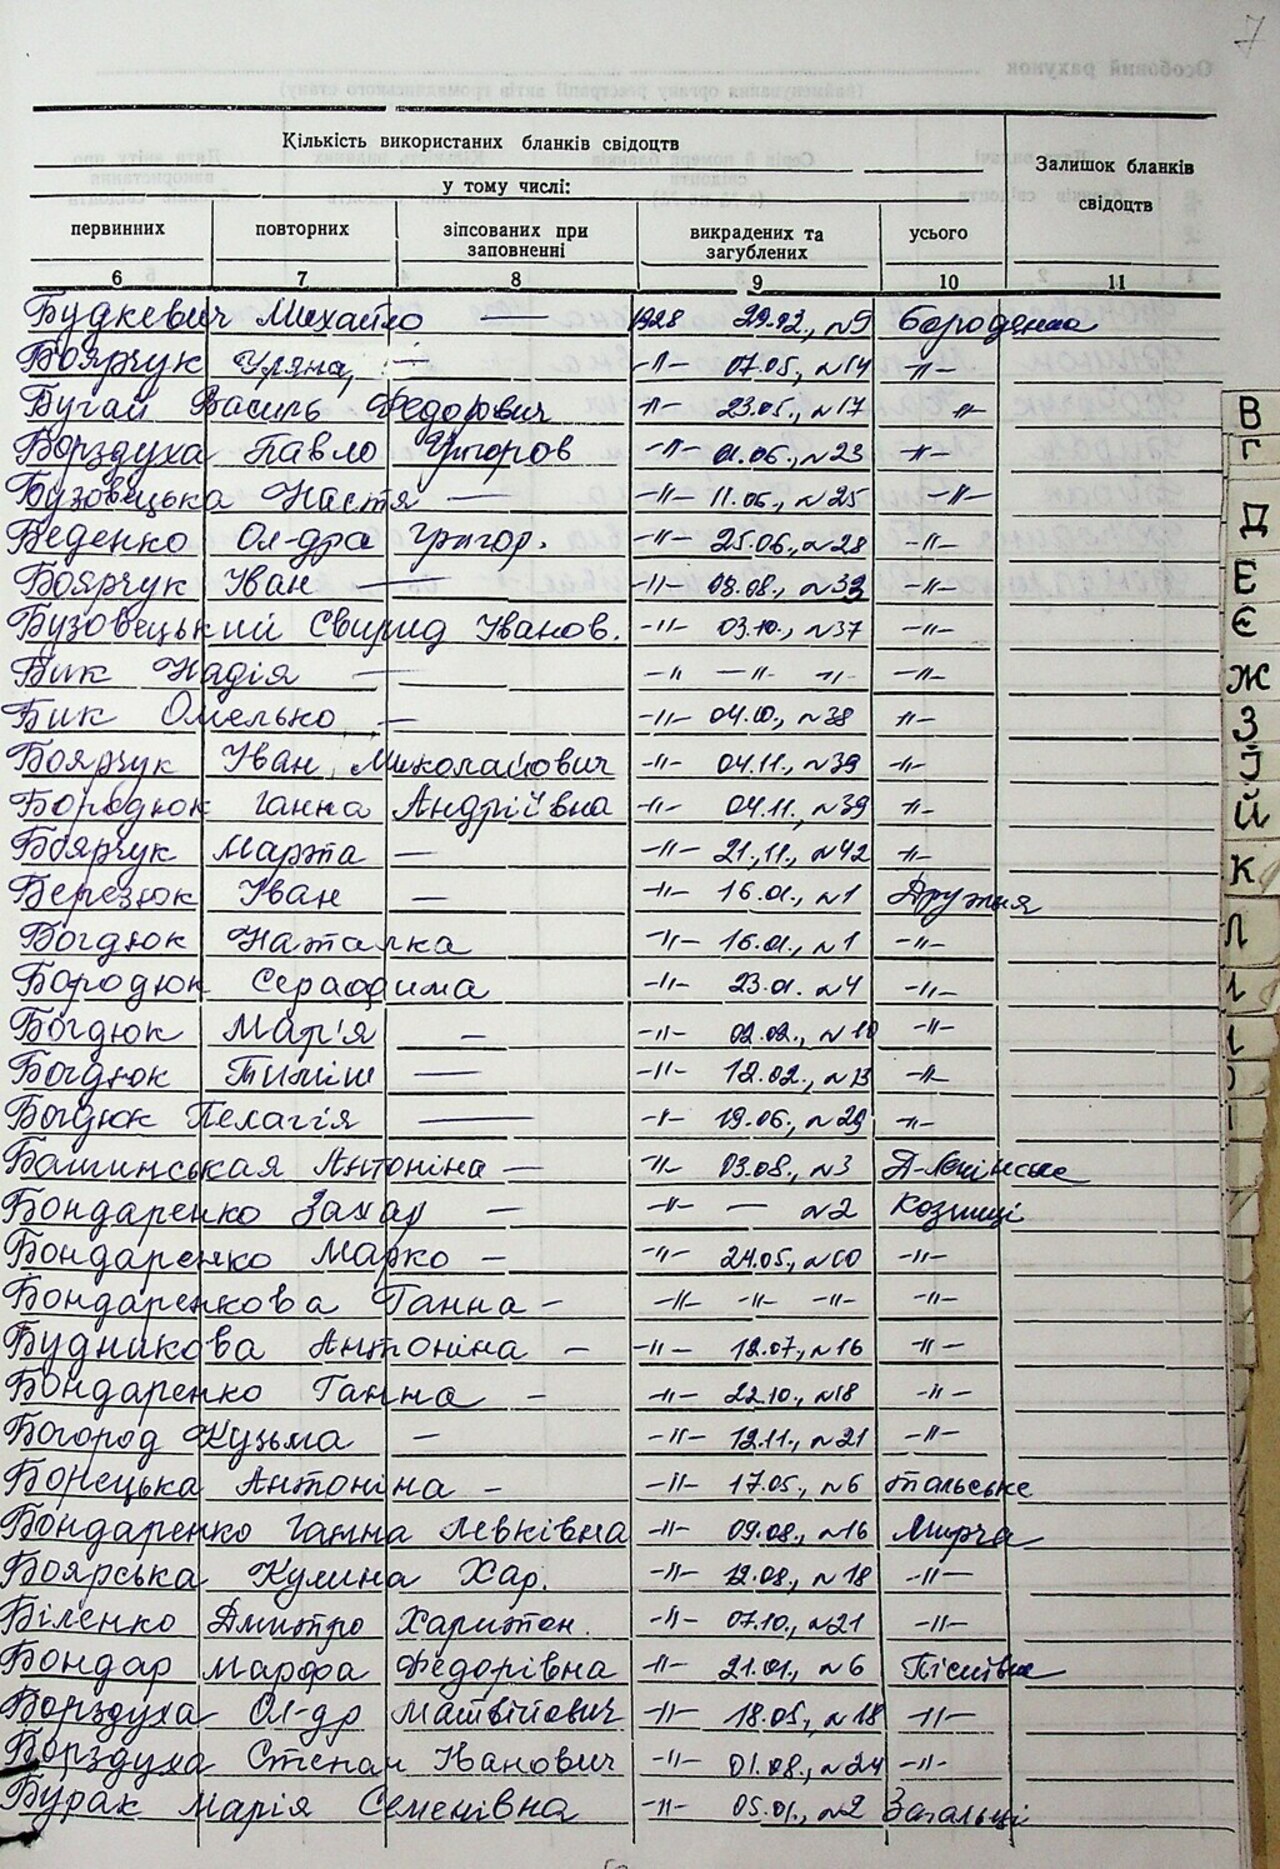 7
Кількість використаних бланків свідоцтв
Залишок бланків свідоцтв
у тому числі:
первинних повторних зіпсованих при заповненні викрадених та загублених усього
6 7 8 9 10 11
Будкевич Михайло — 1928 29.02., N9 Бородянка
Боярчук Уляна, — -"- 07.05., N14 -"-
Бугай Василь Федорович -"- 23.05., N17 -"-
Борздуха Павло Григоров -"- 01.06., N23 -"-
Бузовецька Настя — -"- 11.06., N25 -"-
Беденко Ол-дра Григор. -"- 25.06., N28 -"-
Боярчук Іван — -"- 08.08., N33 -"-
Бузовецький Свирид Іванов. -"- 03.10., N37 -"-
Бик Надія — -"- -"- -"- -"-
Бик Омелько — -"- 04.10., N38 -"-
Боярчук Іван Миколайович -"- 04.11., N39 -"-
Бородюк Ганна Андріївна -"- 04.11., N39 -"-
Боярчук Марта — -"- 21.11., N42 -"-
Березюк Іван — -"- 16.01., N1 Дружня
Богдюк Наталка -"- 16.01., N1 -"-
Бородюк Серафима -"- 23.01. N4 -"-
Богдюк Мар'я — -"- 02.02., N10 -"-
Богдюк Тиміш — -"- 12.02., N13 -"-
Богдюк Пелагія — -"- 19.06., N29 -"-
Башинськая Антоніна — -"- 03.08., N3
Бондаренко Захар — -"- — N2 Козинці
Бондаренко Марко — -"- 24.05., N10 -"-
Бондаренкова Ганна - -"- -"- -"- -"-
Будникова Антоніна — -"- 12.07, N16 -"-
Бондаренко Ганна - -"- 22.10., N18 -"-
Богород Кузьма — -"- 12.11., N21 -"-
Бонецька Антоніна - -"- 17.05., N6 Тальське
Бондаренко Ганна Левківна -"- 09.08., N16 Мирча
Боярська Кулина Хар. -"- 12.08., N18 -"-
Біленко Дмитро Харитон. -"- 07.10., N21 -"-
Бондар Марфа Федорівна -"- 21.01., N6 Пісківка
Борздуха Ол-др Матвійович -"- 18.05., N18 -"-
Борздуха Степан Іванович -"- 01.08., N24 -"-
Бурак Марія Семенівна -"- 05.01., N2 Загальці
В
Г
Д
Е
Є
Ж
З
І
Й
К
Л